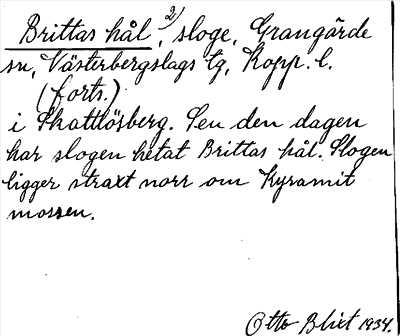 Brittas hål 2), sloge, Grangärde
sn, Västerbergslags tg, Kopp. l.
(forts.)
i Skattlösberg. Sen den dagen
har slogen hetat Brittas hål. Slogen
ligger straxt norr om Kyramit
mossen.
Otto Blixt 1934.